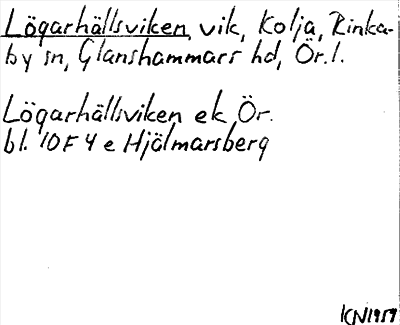 Lögarhällsviken, vik, Kolja, Rinka-
by sn, Glanshammars hd, Ör. l.
Lögarhällsviken ek Ör.
bl. 10F 4 e Hjälmarsberg
KN1959